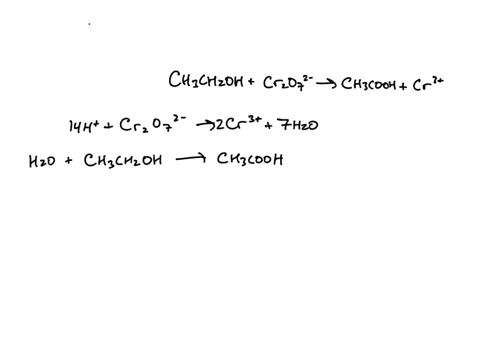 CH3CH2OH + Cr2O7²⁻ → CH3COOH + Cr³⁺
14H⁺ + Cr2O7²⁻ → 2Cr³⁺ + 7H2O
H2O + CH3CH2OH → CH3COOH